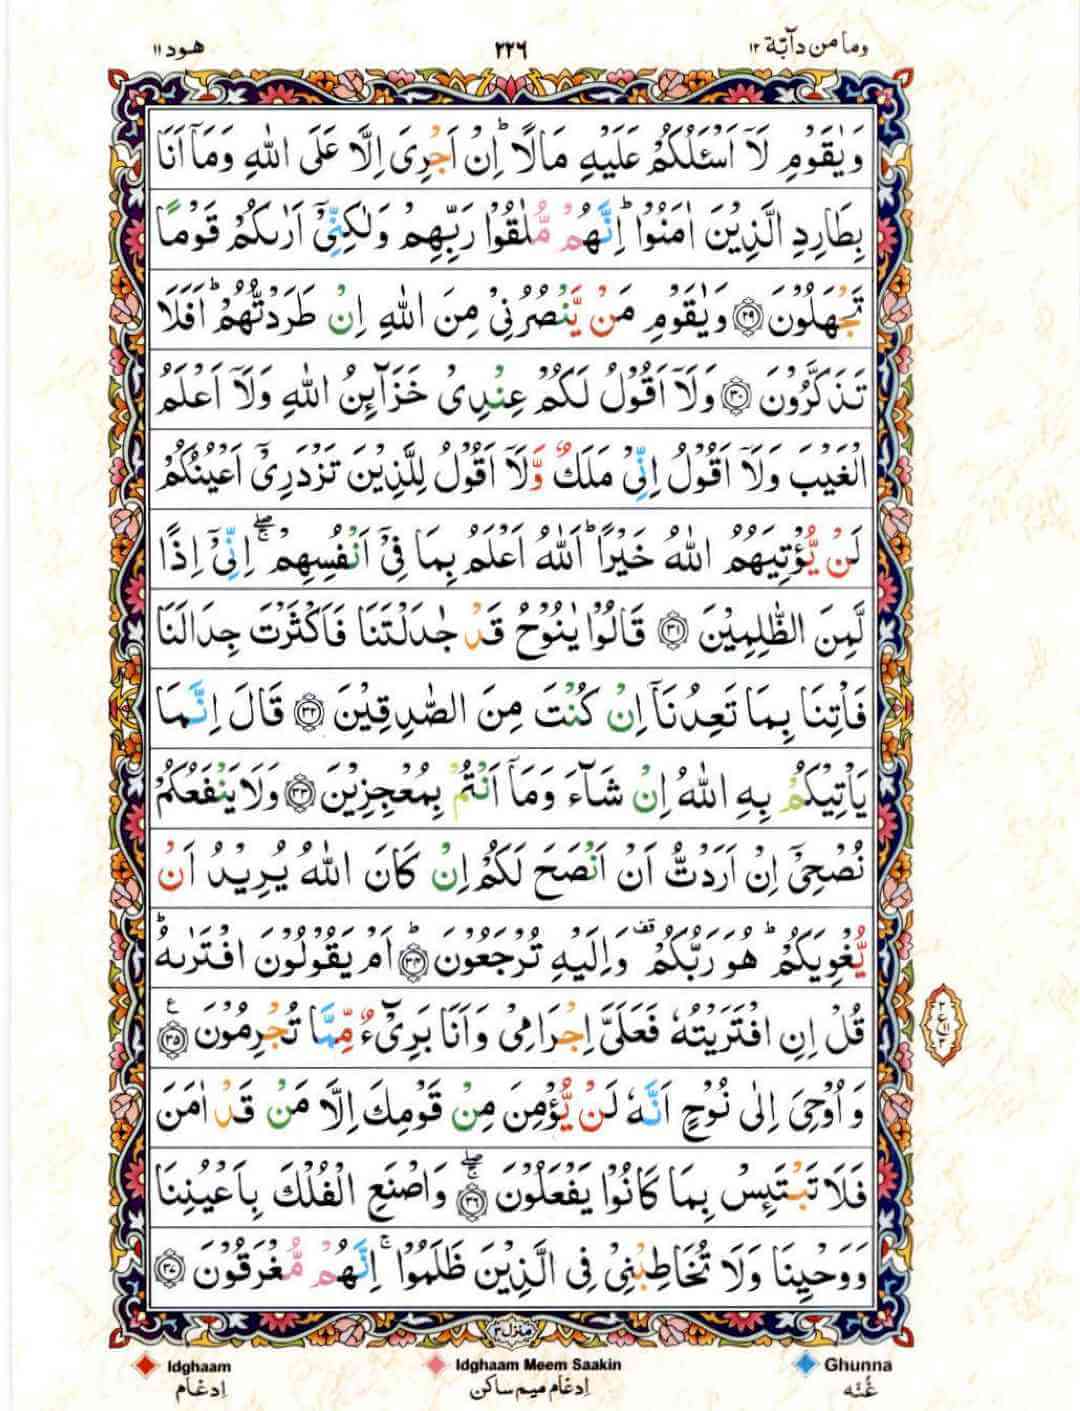 وما من دآبّة ١٢ ٢٢٦ هود ١١
وَيٰقَوْمِ لَآ اَسْـَٔلُكُمْ عَلَيْهِ مَالًا ؕ اِنْ اَجْرِىَ اِلَّا عَلَى اللّٰهِ وَمَآ اَنَا
بِطَارِدِ الَّذِيْنَ اٰمَنُوْا ؕ اِنَّهُمْ مُّلٰقُوْا رَبِّهِمْ وَلٰكِنِّىْٓ اَرٰىكُمْ قَوْمًا
تَجْهَلُوْنَ ۝٢٩ وَيٰقَوْمِ مَنْ يَّنْصُرُنِىْ مِنَ اللّٰهِ اِنْ طَرَدْتُّهُمْ ؕ اَفَلَا
تَذَكَّرُوْنَ ۝٣٠ وَلَآ اَقُوْلُ لَكُمْ عِنْدِىْ خَزَآئِنُ اللّٰهِ وَلَآ اَعْلَمُ
الْغَيْبَ وَلَآ اَقُوْلُ اِنِّىْ مَلَكٌ وَّلَآ اَقُوْلُ لِلَّذِيْنَ تَزْدَرِىْٓ اَعْيُنُكُمْ
لَنْ يُّؤْتِيَهُمُ اللّٰهُ خَيْرًا ؕ اَللّٰهُ اَعْلَمُ بِمَا فِىْٓ اَنْفُسِهِمْ ۚۖ اِنِّىْٓ اِذًا
لَّمِنَ الظّٰلِمِيْنَ ۝٣١ قَالُوْا يٰنُوْحُ قَدْ جٰدَلْتَنَا فَاَكْثَرْتَ جِدَالَنَا
فَاْتِنَا بِمَا تَعِدُنَآ اِنْ كُنْتَ مِنَ الصّٰدِقِيْنَ ۝٣٢ قَالَ اِنَّمَا
يَاْتِيْكُمْ بِهِ اللّٰهُ اِنْ شَآءَ وَمَآ اَنْتُمْ بِمُعْجِزِيْنَ ۝٣٣ وَلَا يَنْفَعُكُمْ
نُصْحِىْٓ اِنْ اَرَدْتُّ اَنْ اَنْصَحَ لَكُمْ اِنْ كَانَ اللّٰهُ يُرِيْدُ اَنْ
يُّغْوِيَكُمْ ؕ هُوَ رَبُّكُمْ قف وَاِلَيْهِ تُرْجَعُوْنَ ؕ۝٣٤ اَمْ يَقُوْلُوْنَ افْتَرٰىهُ ؕ
قُلْ اِنِ افْتَرَيْتُهٗ فَعَلَىَّ اِجْرَامِىْ وَاَنَا بَرِىْٓءٌ مِّمَّا تُجْرِمُوْنَ ۝٣٥ ع
وَاُوْحِىَ اِلٰى نُوْحٍ اَنَّهٗ لَنْ يُّؤْمِنَ مِنْ قَوْمِكَ اِلَّا مَنْ قَدْ اٰمَنَ
فَلَا تَبْتَئِسْ بِمَا كَانُوْا يَفْعَلُوْنَ ۚۖ۝٣٦ وَاصْنَعِ الْفُلْكَ بِاَعْيُنِنَا
وَوَحْيِنَا وَلَا تُخَاطِبْنِىْ فِى الَّذِيْنَ ظَلَمُوْا ۚ اِنَّهُمْ مُّغْرَقُوْنَ ۝٣٧
منزل ٣
Idghaam Idghaam Meem Saakin Ghunna
اِدغام اِدغام میم ساکن غُنّه